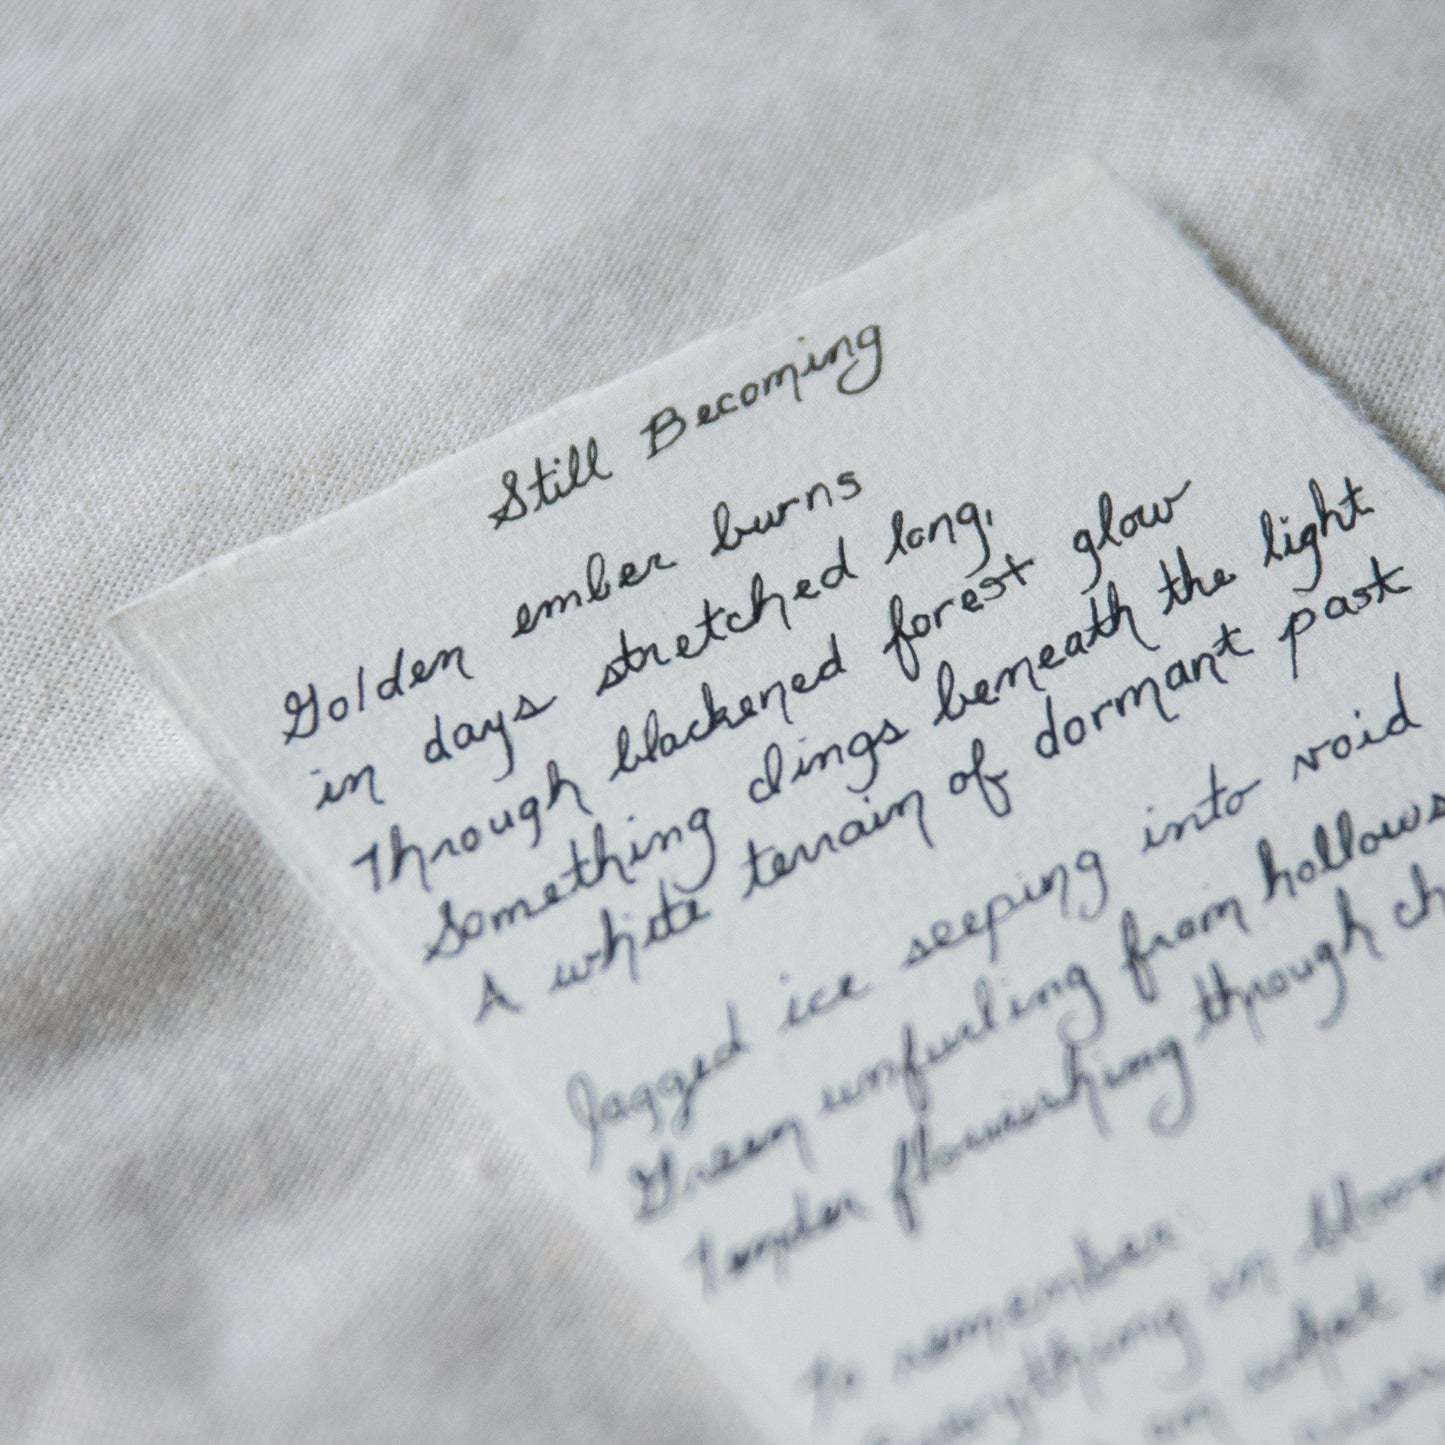 Still Becoming
Golden ember burns
in days stretched long,
Through blackened forest glow
Something clings beneath the light
A white terrain of dormant past
Jagged ice seeping into void
Green unfurling from hollows
Tender flourishing through
To remember:
Everything in
in what